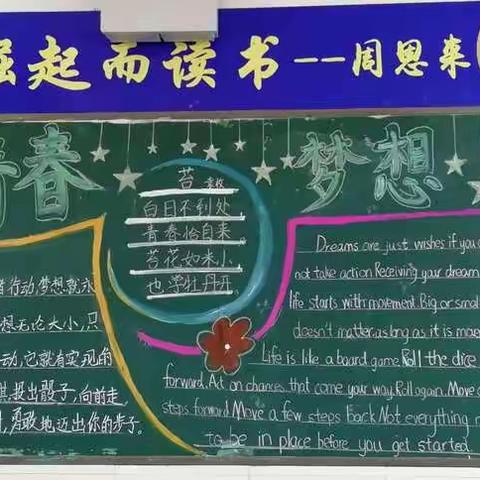 崛起而读书--周恩来
青春 梦想
苔 袁枚
白日不到处,
青春恰自来。
苔花如米小,
也学牡丹开.
行动,梦想就永
想无论大小,只
动,它就有实现的
棋,投出骰子,向前走,
勇敢地迈出你的步子.
Dreams are just wishes if you
not take action Receiving your dream
life starts with movement. Big or small
doesn't matter. as long as it is
Life is like a board game. Roll the dice
forward. Act on chances that come your way. Roll again. Move
steps forward Move a few steps Back Not everything
to be in place before you get started